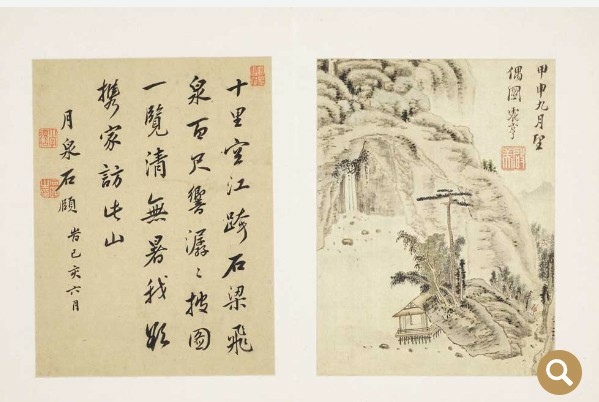 甲申九月望
偶圖震亨
十里空江跨石梁飛
泉百尺響潺〻披圖
一覽清無暑我欲
携家訪此山
月泉石 旹己亥六月